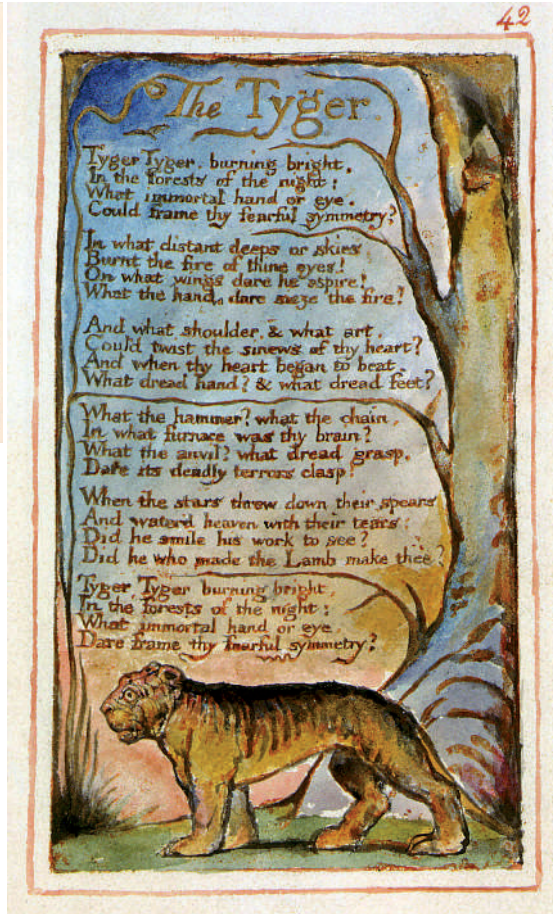 42
The Tyger.
Tyger Tyger, burning bright,
In the forests of the night:
What immortal hand or eye,
Could frame thy fearful symmetry?
In what distant deeps or skies
Burnt the fire of thine eyes!
On what wings dare he aspire!
What the hand, dare sieze the fire!
And what shoulder, & what art,
Could twist the sinews of thy heart?
And when thy heart began to beat,
What dread hand? & what dread feet?
What the hammer? what the chain,
In what furnace was thy brain?
What the anvil? what dread grasp,
Dare its deadly terrors clasp!
When the stars threw down their spears
And water'd heaven with their tears:
Did he smile his work to see?
Did he who made the Lamb make thee?
Tyger, Tyger burning bright,
In the forests of the night:
What immortal hand or eye,
Dare frame thy fearful symmetry?